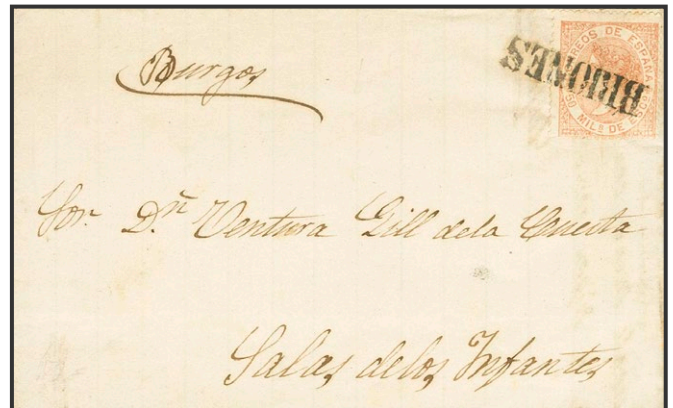 Burgos
CORREOS DE ESPAÑA
BRIONES
MILS DE ESCO
Sor. Dn Ventura Gill dela Cuesta
Salas delos Infantes